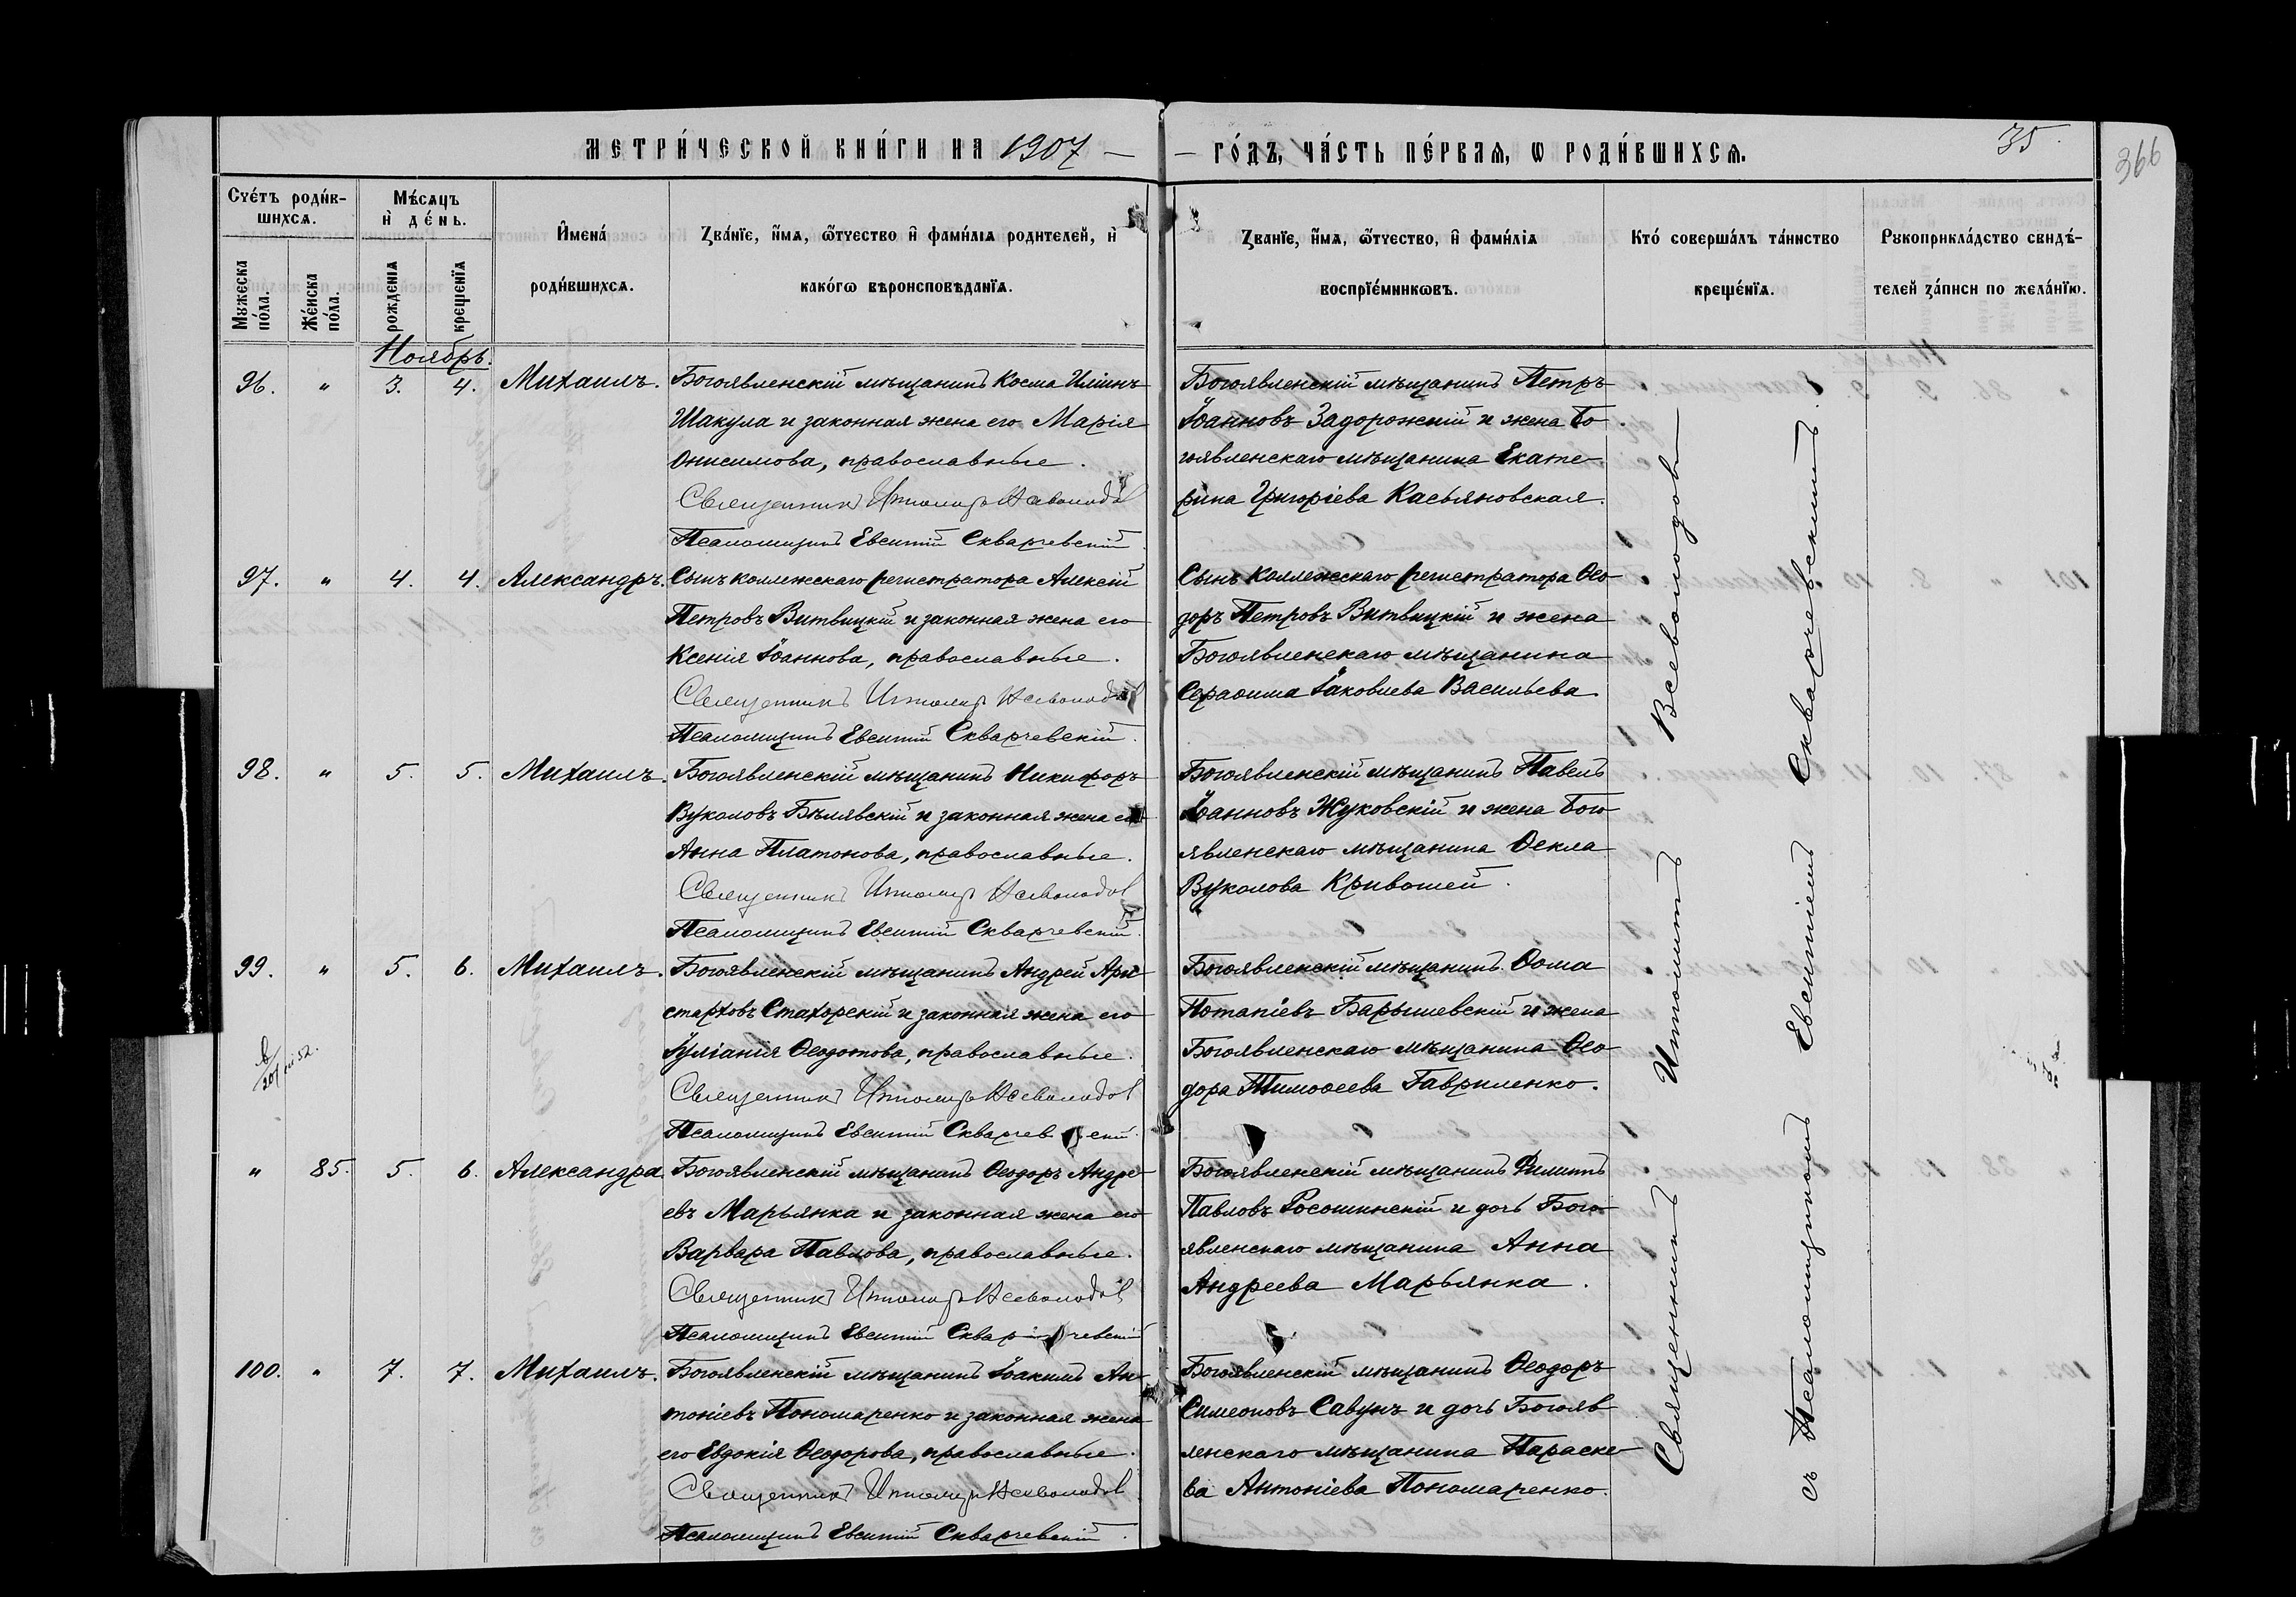 МЕТРИ́ЧЕСКОЙ КНИ́ГИ НА 1907 — — ГО́ДЪ, ЧА́СТЬ ПЕ́РВАѦ, Ѡ РОДИ́ВШИХСѦ.
35.
366
Счетъ роди́вшихсѧ.
Мужеска по́ла.
Же́нска по́ла.
Мѣ́сѧцъ и де́нь.
рожденїѧ
крещенїѧ
И҆мена́ роди́вшихсѧ.
Зва́нїе, и҆́мѧ, ѻ҆́тчество и҆ фами́лїѧ родителей, и҆ како́гѡ вѣроисповѣ́данїѧ.
Зва́нїе, и҆́мѧ, ѻ҆́тчество, и҆ фами́лїѧ воспрїе́мникѡвъ.
Кто́ соверша́лъ та́инство креще́нїѧ.
Рукоприкла́дство свидѣ́телей за́писи по жела́нїю.
Ноябрь.
96. " 3. 4. Михаилъ.
Богоявленскій мѣщанинъ Косма Иліинъ
Шакула и законная жена его Марія
Онисимова, православные.
Священникъ Ипполитъ Всеволодов
Псаломщикъ ЕвсигнійСкварчевскій.
Богоявленскій мѣщанинъ Петръ
Іоанновъ Задорожній и жена Бо
гоявленскаго мѣщанина Екате-
рина Григоріева Касьяновская.
97. " 4. 4. Александръ.
Сынъ коллежскаго регистратора Алексій
Петровъ Витвицкій и законная жена его
Ксенія Іоаннова, православные.
Священникъ Ипполитъ Всеволодов
Псаломщикъ Евсигній Скварчевскій.
Сынъ коллежскаго регистратора Ѳео-
доръ Петровъ Витвицкій и жена
Богоявленскаго мѣщанина
Серафима Іаковлева Васильева.
98. " 5. 5. Михаилъ.
Богоявленскій мѣщанинъ Никифоръ
Вуколовъ Бѣлявскій и законная жена его
Анна Платонова, православные.
Священникъ Ипполитъ Всеволодов
Псаломщикъ Евсигній Скварчевскій.
Богоявленскій мѣщанинъ Павелъ
Іоанновъ Жуковскій и жена Бого
явленскаго мѣщанина Ѳекла
Вуколова Кривошей.
99. " 5. 6. Михаилъ.
Богоявленскій мѣщанинъ Андрей Ари-
старховъ Стахорскій и законная жена его
Іуліанія Ѳеодотова, православные.
Священникъ Ипполитъ Всеволодов
Псаломщикъ Евсигній Скварчевскій.
Богоявленскій мѣщанинъ Ѳома
Потапіевъ Барышевскій и жена
Богоявленскаго мѣщанина Ѳео
дора Тимоѳеева Гавриленко.
" 85. 5. 6. Александра.
Богоявленскій мѣщанинъ Ѳеодоръ Андре-
евъ Марьянка и законная жена его
Варвара Павлова, православные.
Священникъ Ипполитъ Всеволодов
Псаломщикъ Евсигній Скварчевскій
Богоявленскій мѣщанинъ Филиппъ
Павловъ Росошинскій и дочь Бого-
явленскаго мѣщанина Анна
Андреева Марьянка.
100. " 7. 7. Михаилъ.
Богоявленскій мѣщанинъ Іоакимъ Ан-
тоніевъ Пономаренко и законная жена
его Евдокія Ѳеодорова, православные.
Священникъ Ипполитъ Всеволодов
Псаломщикъ Евсигній Скварчевскій.
Богоявленскій мѣщанинъ Ѳеодоръ
Симеоновъ Савунъ и дочь Богояв
ленскаго мѣщанина Параске-
ва Антоніева Пономаренко.
Священникъ Ипполитъ Всеволодовъ
съ Псаломщикомъ Евсигніемъ Скварчевскимъ.